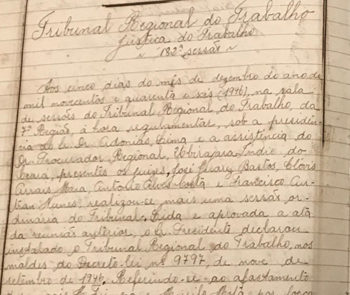 Tribunal Regional do Trabalho
Justiça do Trabalho
~ 180ª sessão ~
Aos cinco dias do mês de dezembro do ano de
mil novecentos e quarenta e seis (1946), na sala
de sessões do Tribunal Regional do Trabalho, da
7ª Região, à hora regulamentar, sob a presidên-
cia do Sr. Dr. Adonias Lima e a assistência do
Sr. Procurador Regional, Ubirajara Índio do
Ceará, presentes os juizes, José Bastos, Clovis
Arrais Maia, Antonio Alves Costa e Francisco Au-
Nunes, realizou-se mais uma sessão or-
dinária do Tribunal. Lida e aprovada a ata
da reunião anterior, o Sr. Presidente declarou
instalado o Tribunal Regional do Trabalho, nos
moldes do Decreto-lei nº 9797 de nove de
setembro de 1946. Referindo-se ao afastamento